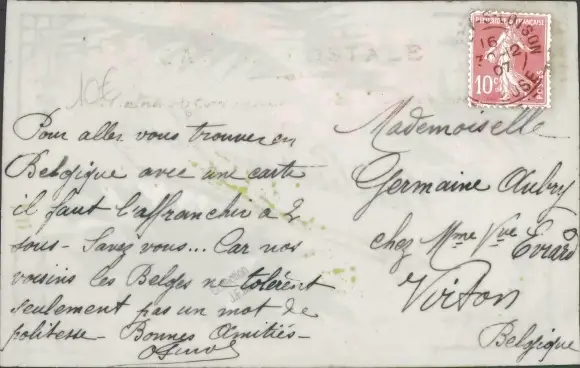 Pour aller vous trouver en
Belgique avec une carte
il faut l'affranchir à 2
sous - Savez vous... Car nos
voisins les Belges ne tolèrent
seulement pas un mot de
politesse - Bonnes Amitiés -
REPUBLIQUE FRANCAISE
10c
16
07
Mademoiselle
Germaine Aubry
chez Mme Vve Evrard
Virton
Belgique